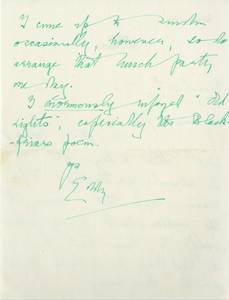 I come up to London
occasionally, however, so do
arrange that lunch party
one day.
I enormously enjoyed "Old
Lights", especially the Black-
-friars poem.